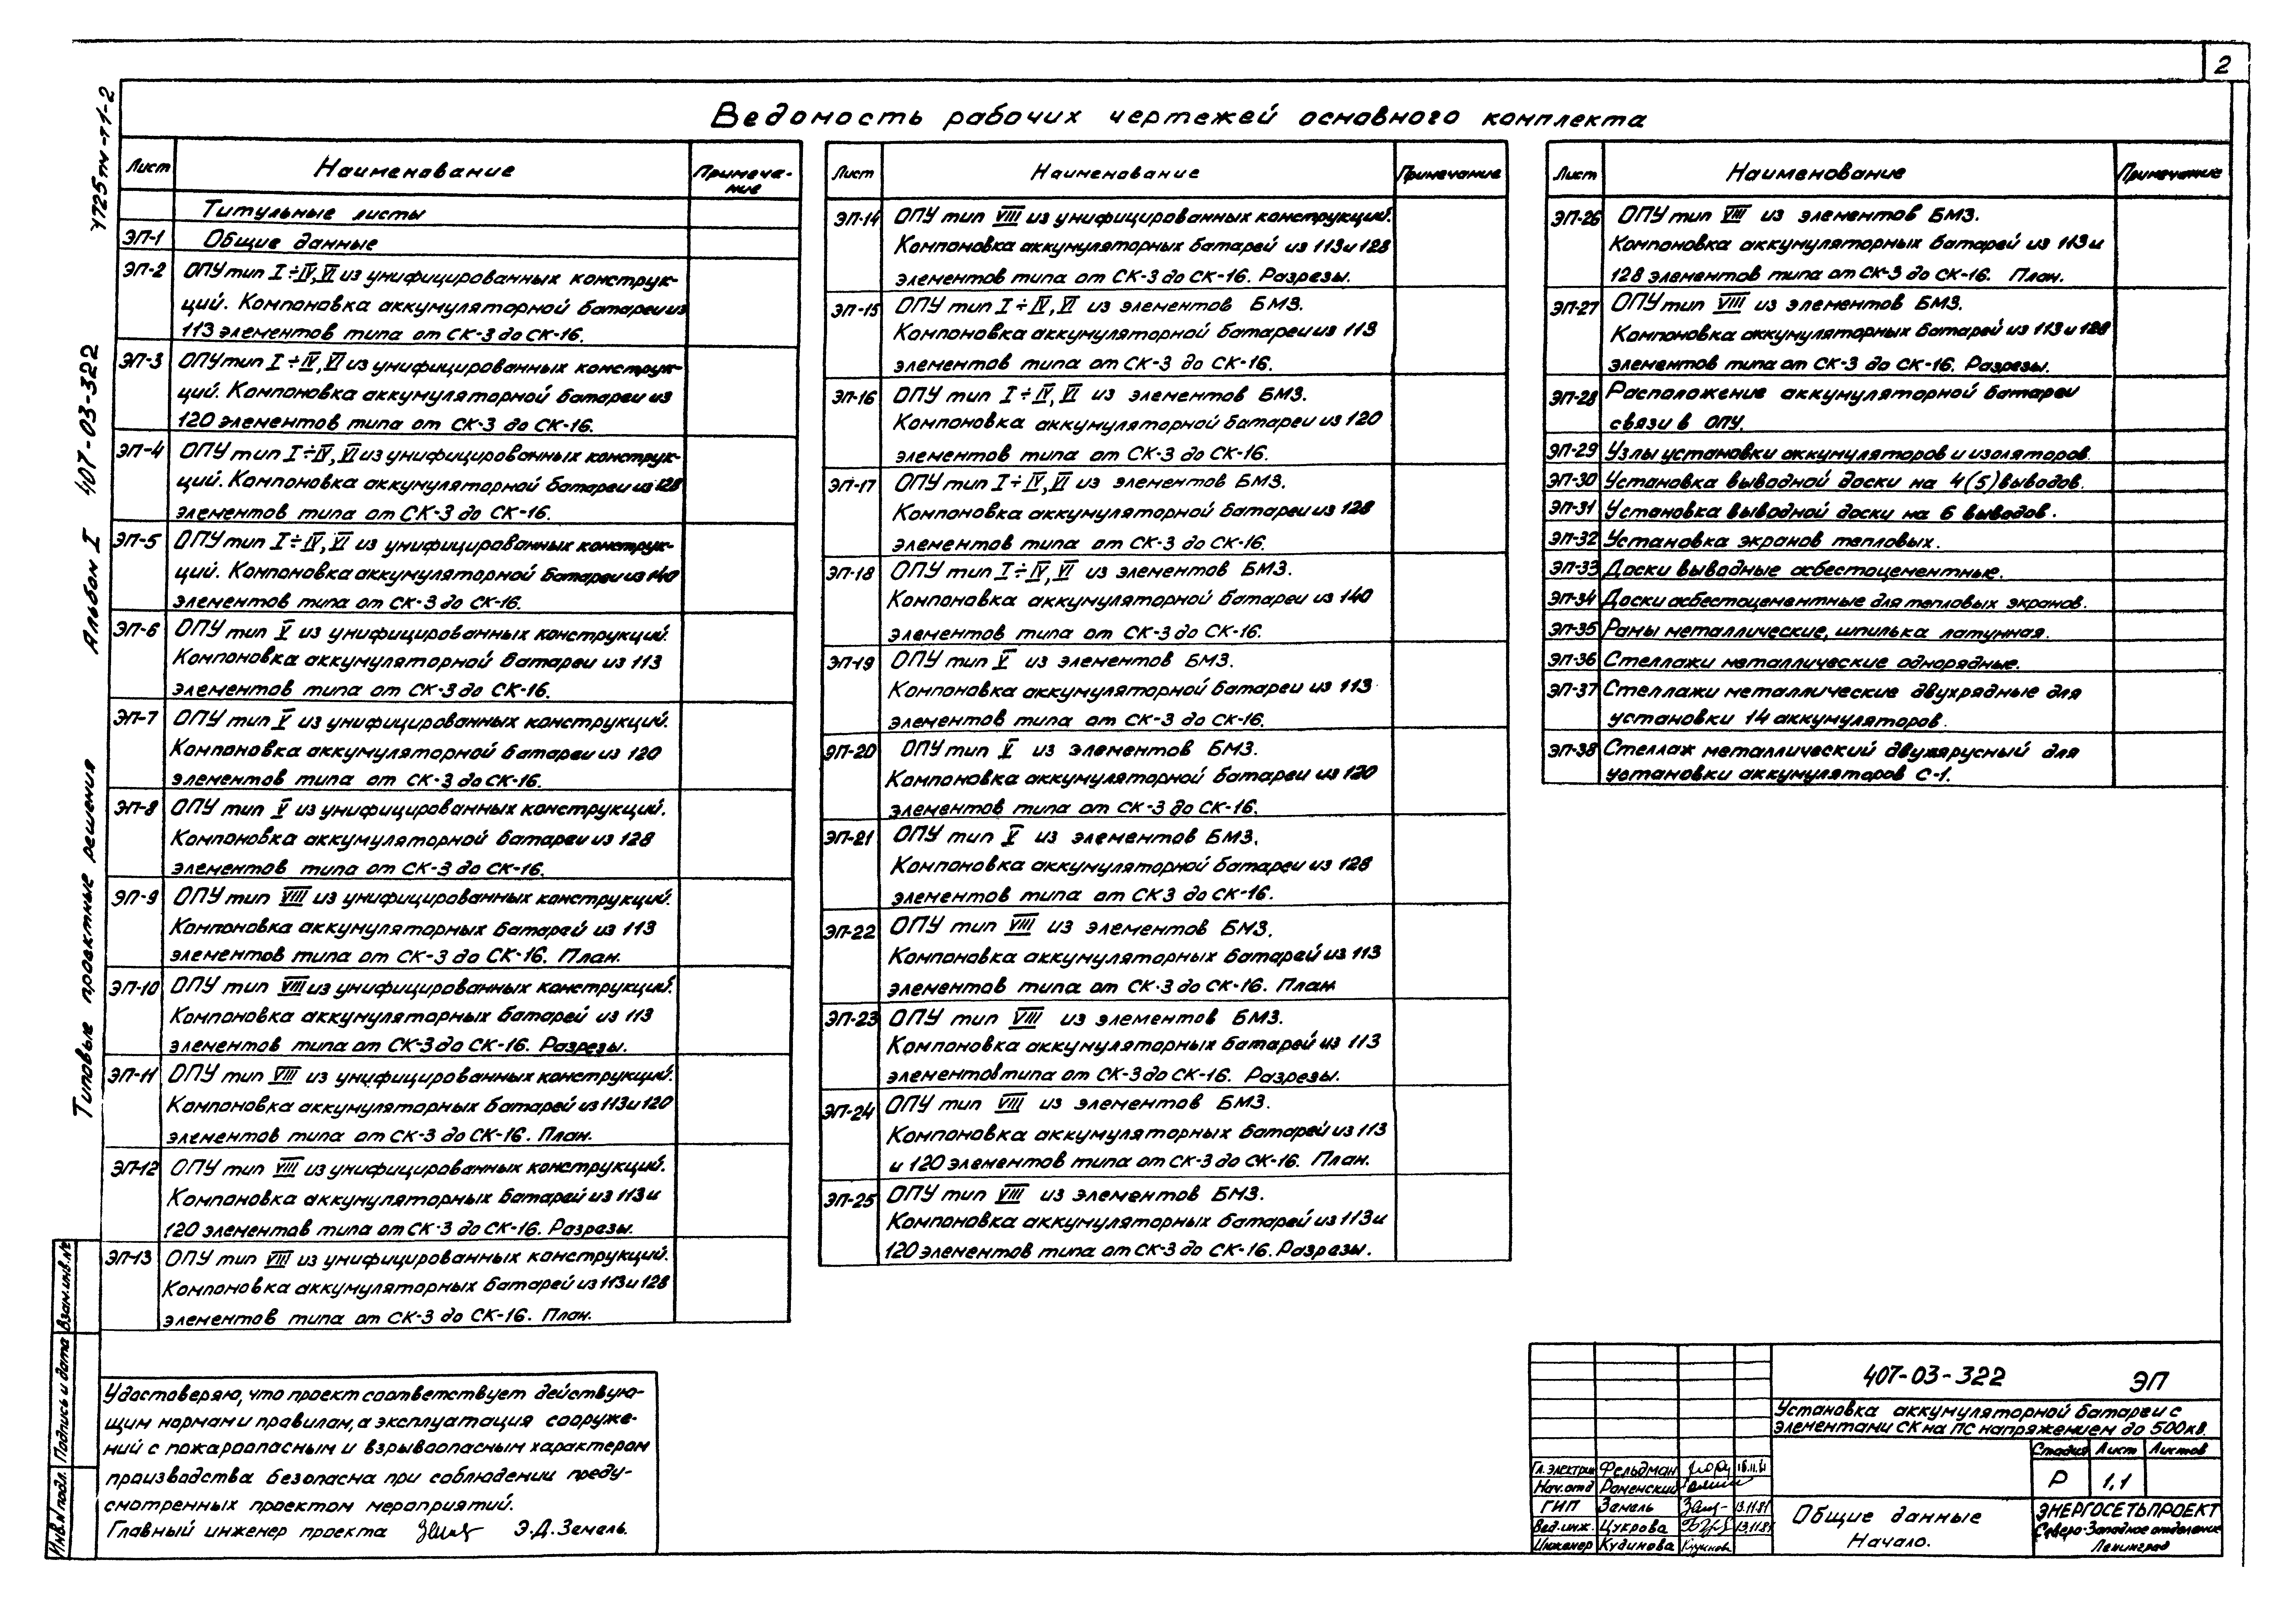 2
Ведомость рабочих чертежей основного комплекта
Лист Наименование Примеча-
ние
Титульные листы
ЭП-1 Общие данные
ЭП-2 ОПУ тип I÷IV,VI из унифицированных конструк-
ций. Компоновка аккумуляторной батареи из
113 элементов типа от СК-3 до СК-16.
ЭП-3 ОПУ тип I÷IV,VI из унифицированных конструк-
ций. Компоновка аккумуляторной батареи из
120 элементов типа от СК-3 до СК-16.
ЭП-4 ОПУ тип I÷IV,VI из унифицированных конструк-
ций. Компоновка аккумуляторной батареи из 128
элементов типа от СК-3 до СК-16.
ЭП-5 ОПУ тип I÷IV,VI из унифицированных конструк-
ций. Компоновка аккумуляторной батареи из 140
элементов типа от СК-3 до СК-16.
ЭП-6 ОПУ тип V из унифицированных конструкций.
Компоновка аккумуляторной батареи из 113
элементов типа от СК-3 до СК-16.
ЭП-7 ОПУ тип V из унифицированных конструкций.
Компоновка аккумуляторной батареи из 120
элементов типа от СК-3 до СК-16.
ЭП-8 ОПУ тип V из унифицированных конструкций.
Компоновка аккумуляторной батареи из 128
элементов типа от СК-3 до СК-16.
ЭП-9 ОПУ тип VIII из унифицированных конструкций.
Компоновка аккумуляторных батарей из 113
элементов типа от СК-3 до СК-16. План.
ЭП-10 ОПУ тип VIII из унифицированных конструкций.
Компоновка аккумуляторных батарей из 113
элементов типа от СК-3 до СК-16. Разрезы.
ЭП-11 ОПУ тип VIII из унифицированных конструкций.
Компоновка аккумуляторных батарей из 113 и 120
элементов типа от СК-3 до СК-16. План.
ЭП-12 ОПУ тип VIII из унифицированных конструкций.
Компоновка аккумуляторных батарей из 113 и
120 элементов типа от СК-3 до СК-16. Разрезы.
ЭП-13 ОПУ тип VIII из унифицированных конструкций.
Компоновка аккумуляторных батарей из 113 и 128
элементов типа от СК-3 до СК-16. План.
Лист Наименование Примечание
ЭП-14 ОПУ тип VIII из унифицированных конструкций.
Компоновка аккумуляторных батарей из 113 и 128
элементов типа от СК-3 до СК-16. Разрезы.
ЭП-15 ОПУ тип I÷IV,VI из элементов БМЗ.
Компоновка аккумуляторной батареи из 113
элементов типа от СК-3 до СК-16.
ЭП-16 ОПУ тип I÷IV,VI из элементов БМЗ.
Компоновка аккумуляторной батареи из 120
элементов типа от СК-3 до СК-16.
ЭП-17 ОПУ тип I÷IV,VI из элементов БМЗ.
Компоновка аккумуляторной батареи из 128
элементов типа от СК-3 до СК-16.
ЭП-18 ОПУ тип I÷IV,VI из элементов БМЗ.
Компоновка аккумуляторной батареи из 140
элементов типа от СК-3 до СК-16.
ЭП-19 ОПУ тип V из элементов БМЗ.
Компоновка аккумуляторной батареи из 113
элементов типа от СК-3 до СК-16.
ЭП-20 ОПУ тип V из элементов БМЗ.
Компоновка аккумуляторной батареи из 120
элементов типа от СК-3 до СК-16.
ЭП-21 ОПУ тип V из элементов БМЗ.
Компоновка аккумуляторной батареи из 128
элементов типа от СК3 до СК-16.
ЭП-22 ОПУ тип VIII из элементов БМЗ.
Компоновка аккумуляторных батарей из 113
элементов типа от СК-3 до СК-16. План
ЭП-23 ОПУ тип VIII из элементов БМЗ.
Компоновка аккумуляторных батарей из 113
элементов типа от СК-3 до СК-16. Разрезы.
ЭП-24 ОПУ тип VIII из элементов БМЗ.
Компоновка аккумуляторных батарей из 113
и 120 элементов типа от СК-3 до СК-16. План.
ЭП-25 ОПУ тип VIII из элементов БМЗ.
Компоновка аккумуляторных батарей из 113 и
120 элементов типа от СК-3 до СК-16. Разрезы.
Лист Наименование Примечание
ЭП-26 ОПУ тип VIII из элементов БМЗ.
Компоновка аккумуляторных батарей из 113 и
128 элементов типа от СК-3 до СК-16. План.
ЭП-27 ОПУ тип VIII из элементов БМЗ.
Компоновка аккумуляторных батарей из 113 и 128
элементов типа от СК-3 до СК-16. Разрезы.
ЭП-28 Расположение аккумуляторной батареи
связи в ОПУ.
ЭП-29 Узлы установки аккумуляторов и изоляторов.
ЭП-30 Установка выводной доски на 4(5) выводов.
ЭП-31 Установка выводной доски на 6 выводов.
ЭП-32 Установка экранов тепловых.
ЭП-33 Доски выводные асбестоцементные.
ЭП-34 Доски асбестоцементные для тепловых экранов.
ЭП-35 Рамы металлические, шпилька латунная.
ЭП-36 Стеллажи металлические однорядные.
ЭП-37 Стеллажи металлические двухрядные для
установки 14 аккумуляторов.
ЭП-38 Стеллаж металлический двухярусный для
установки аккумуляторов С-1.
Типовые проектные решения Альбом I 407-03-322 4725тм-т1-2
Инв.№ подл. Подпись и дата Взам.инв.№
Удостоверяю, что проект соответствует действую-
щим нормам и правилам, а эксплуатация сооруже-
ний с пожароопасным и взрывоопасным характером
производства безопасна при соблюдении преду-
смотренных проектом мероприятий.
Главный инженер проекта Э.Д.Земель.
407-03-322 ЭП
Установка аккумуляторной батареи с
элементами СК на ПС напряжением до 500кв.
Стадия Лист Листов
Р 1,1
Гл.электрик Фельдман
Нач.отд Раменский
ГИП Земель 13.11.81
Вед.инж. Цукрова 13.11.81
Инженер Кудинова
Общие данные
Начало.
ЭНЕРГОСЕТЬПРОЕКТ
Северо-Западное отделение
Ленинград